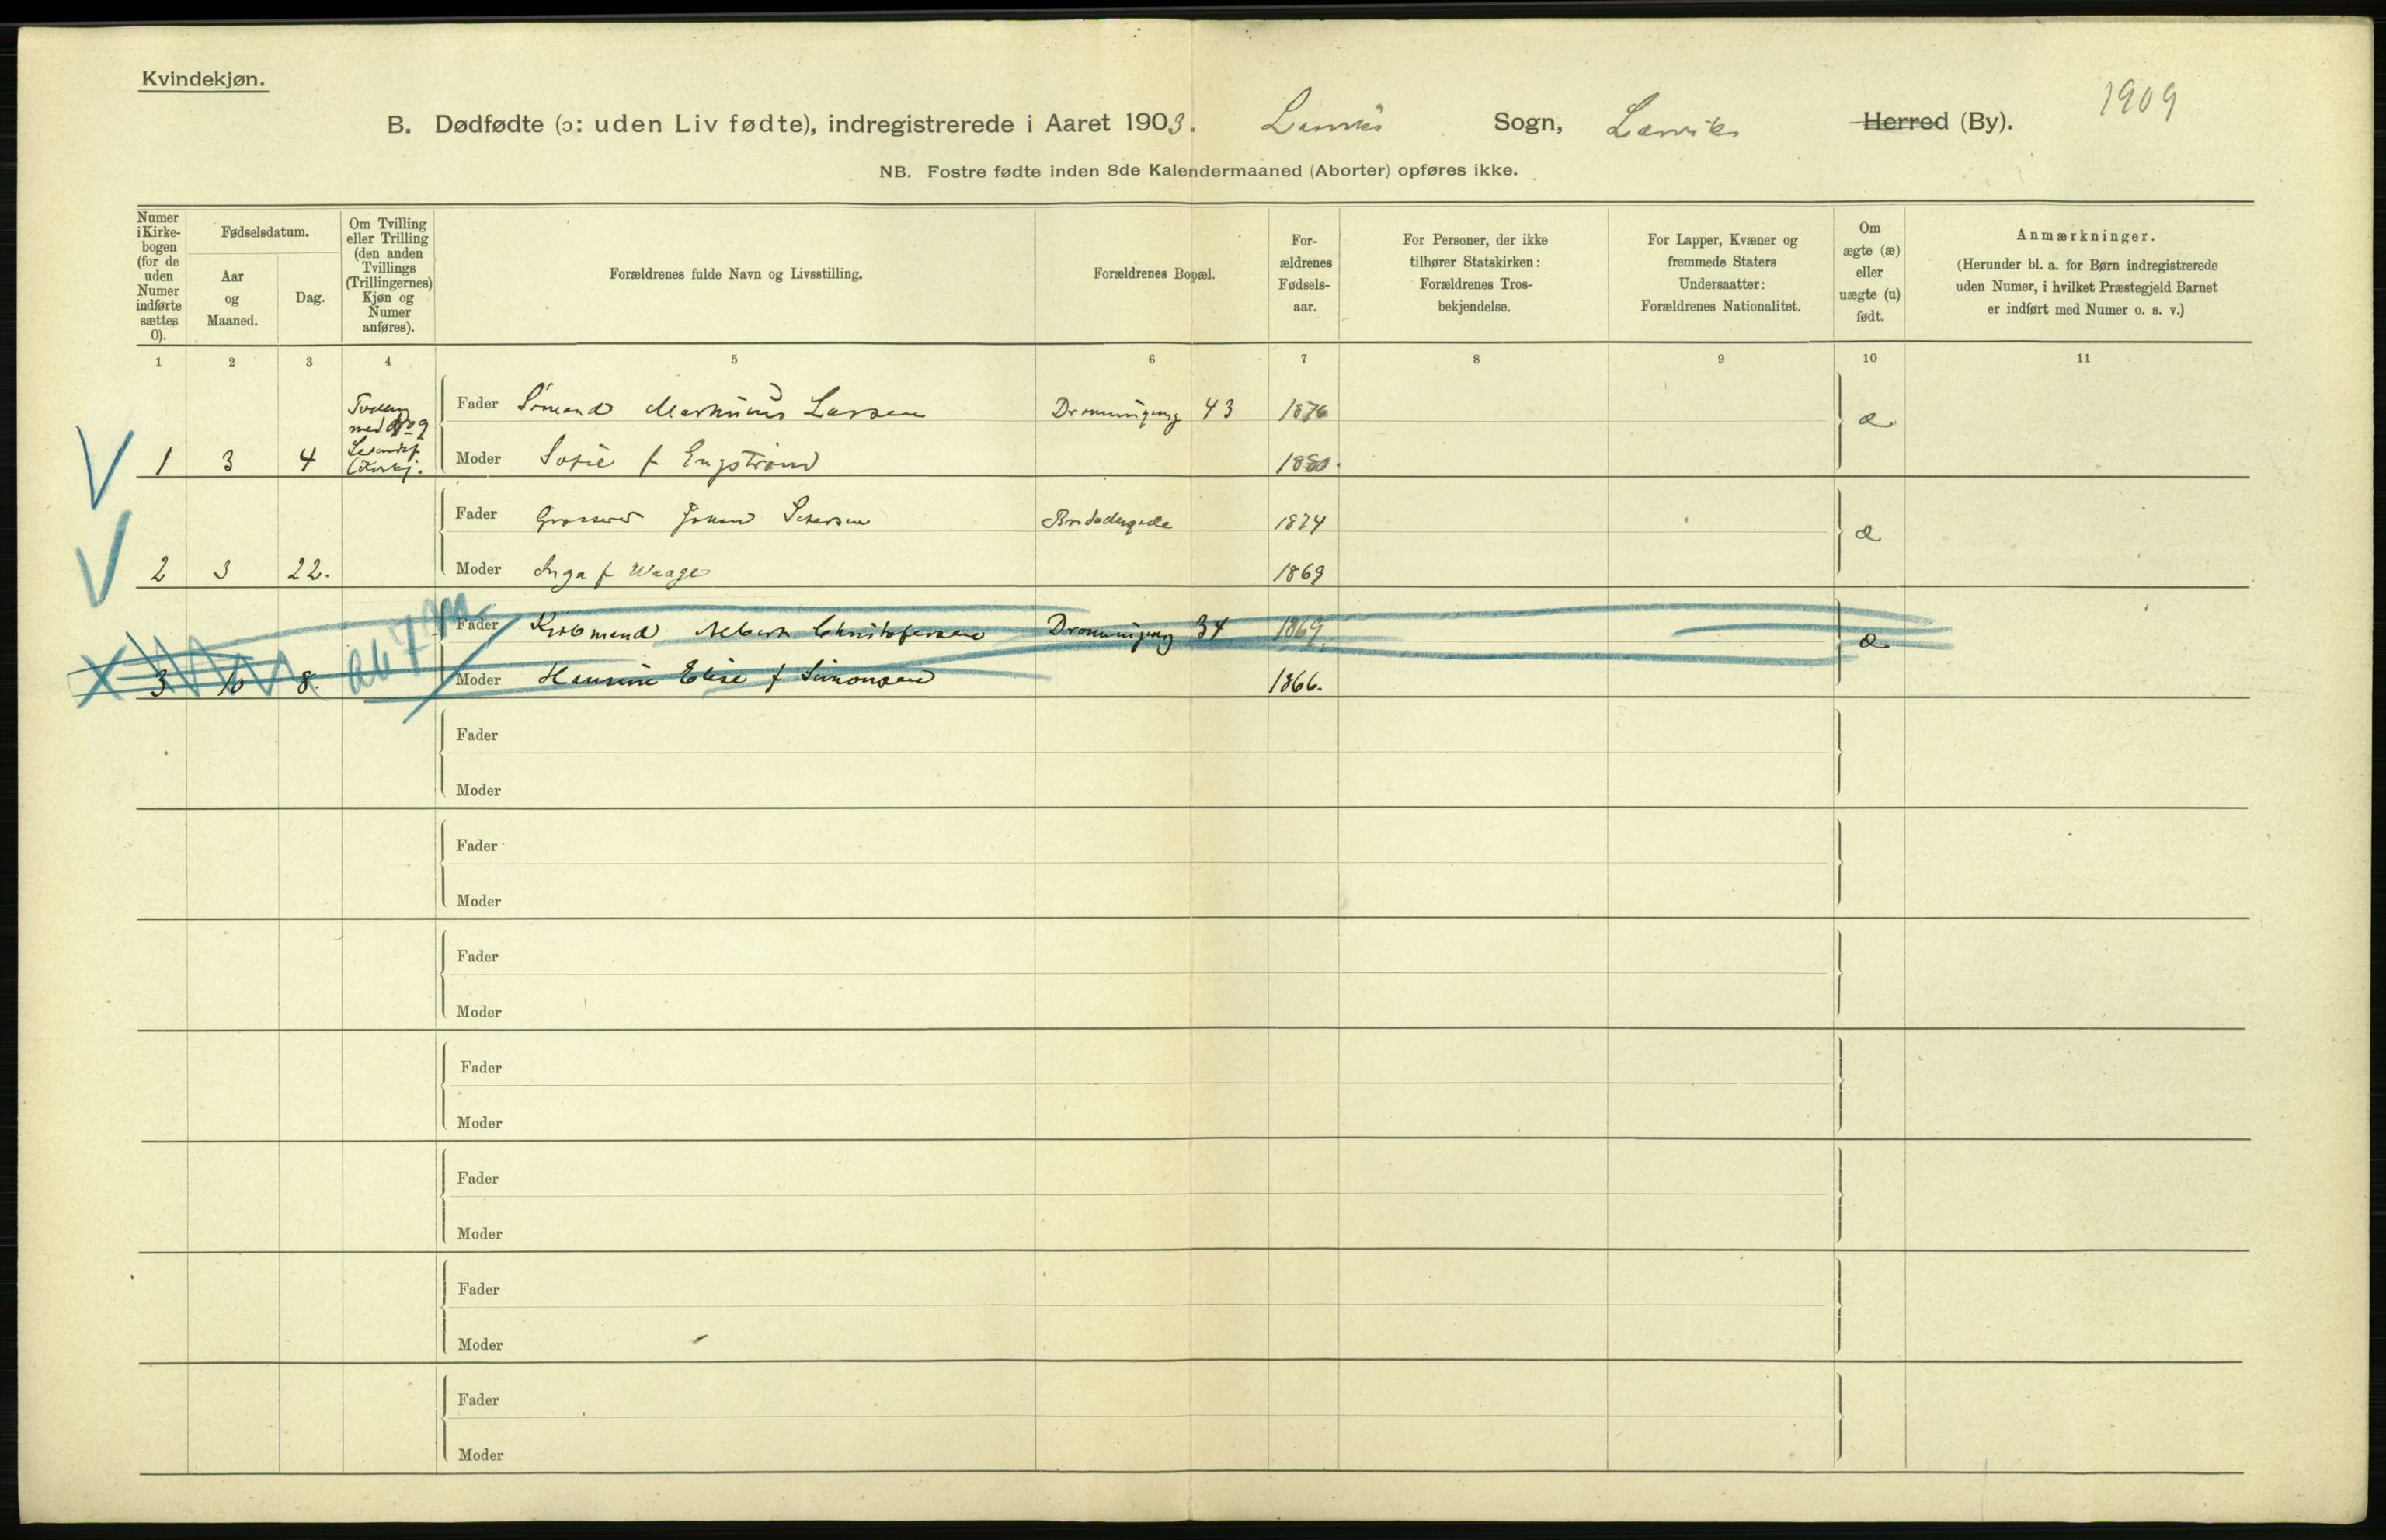 Kvindekjøn.
1909
B. Dødfødte (ɔ: uden Liv fødte), indregistrerede i Aaret 1903. Larviks Sogn, Larviks Herred (By).
NB. Fostre fødte inden 8de Kalendermaaned (Aborter) opføres ikke.
Numer
i Kirke-
bogen
(for de
uden
Numer
indførte
sættes
0).
Fødselsdatum.
Aar
og
Maaned.
Dag.
Om Tvilling
eller Trilling
(den anden
Tvillings
(Trillingernes)
Kjøn og
Numer
anføres).
Forældrenes fulde Navn og Livsstilling.
Forældrenes Bopæl.
For-
ældrenes
Fødsels-
aar.
For Personer, der ikke
tilhører Statskirken:
Forældrenes Tros-
bekjendelse.
For Lapper, Kvæner og
fremmede Staters
Undersaatter:
Forældrenes Nationalitet.
Om
ægte (æ)
eller
uægte (u)
født.
Anmærkninger.
(Herunder bl. a. for Børn indregistrerede
uden Numer, i hvilket Præstegjeld Barnet
er indført med Numer o. s. v.)
1 2 3 4 5 6 7 8 9 10 11
Tvilling
med No 9
Fader Sømand Markinius Larsen Dronningeng 43 1876 æ
1 3 4 Moder Sofie f Engstrøm 1880.
Fader Grosserer Johan 1874 æ
2 3 22. Moder Inga f Waage 1869
Fader Kjøbmand Albert Christofersen Dronningeng 34 1869. æ
3 10 8. Moder Hansine Elise f Simonsen 1866.
Fader
Moder
Fader
Moder
Fader
Moder
Fader
Moder
Fader
Moder
Fader
Moder
Fader
Moder